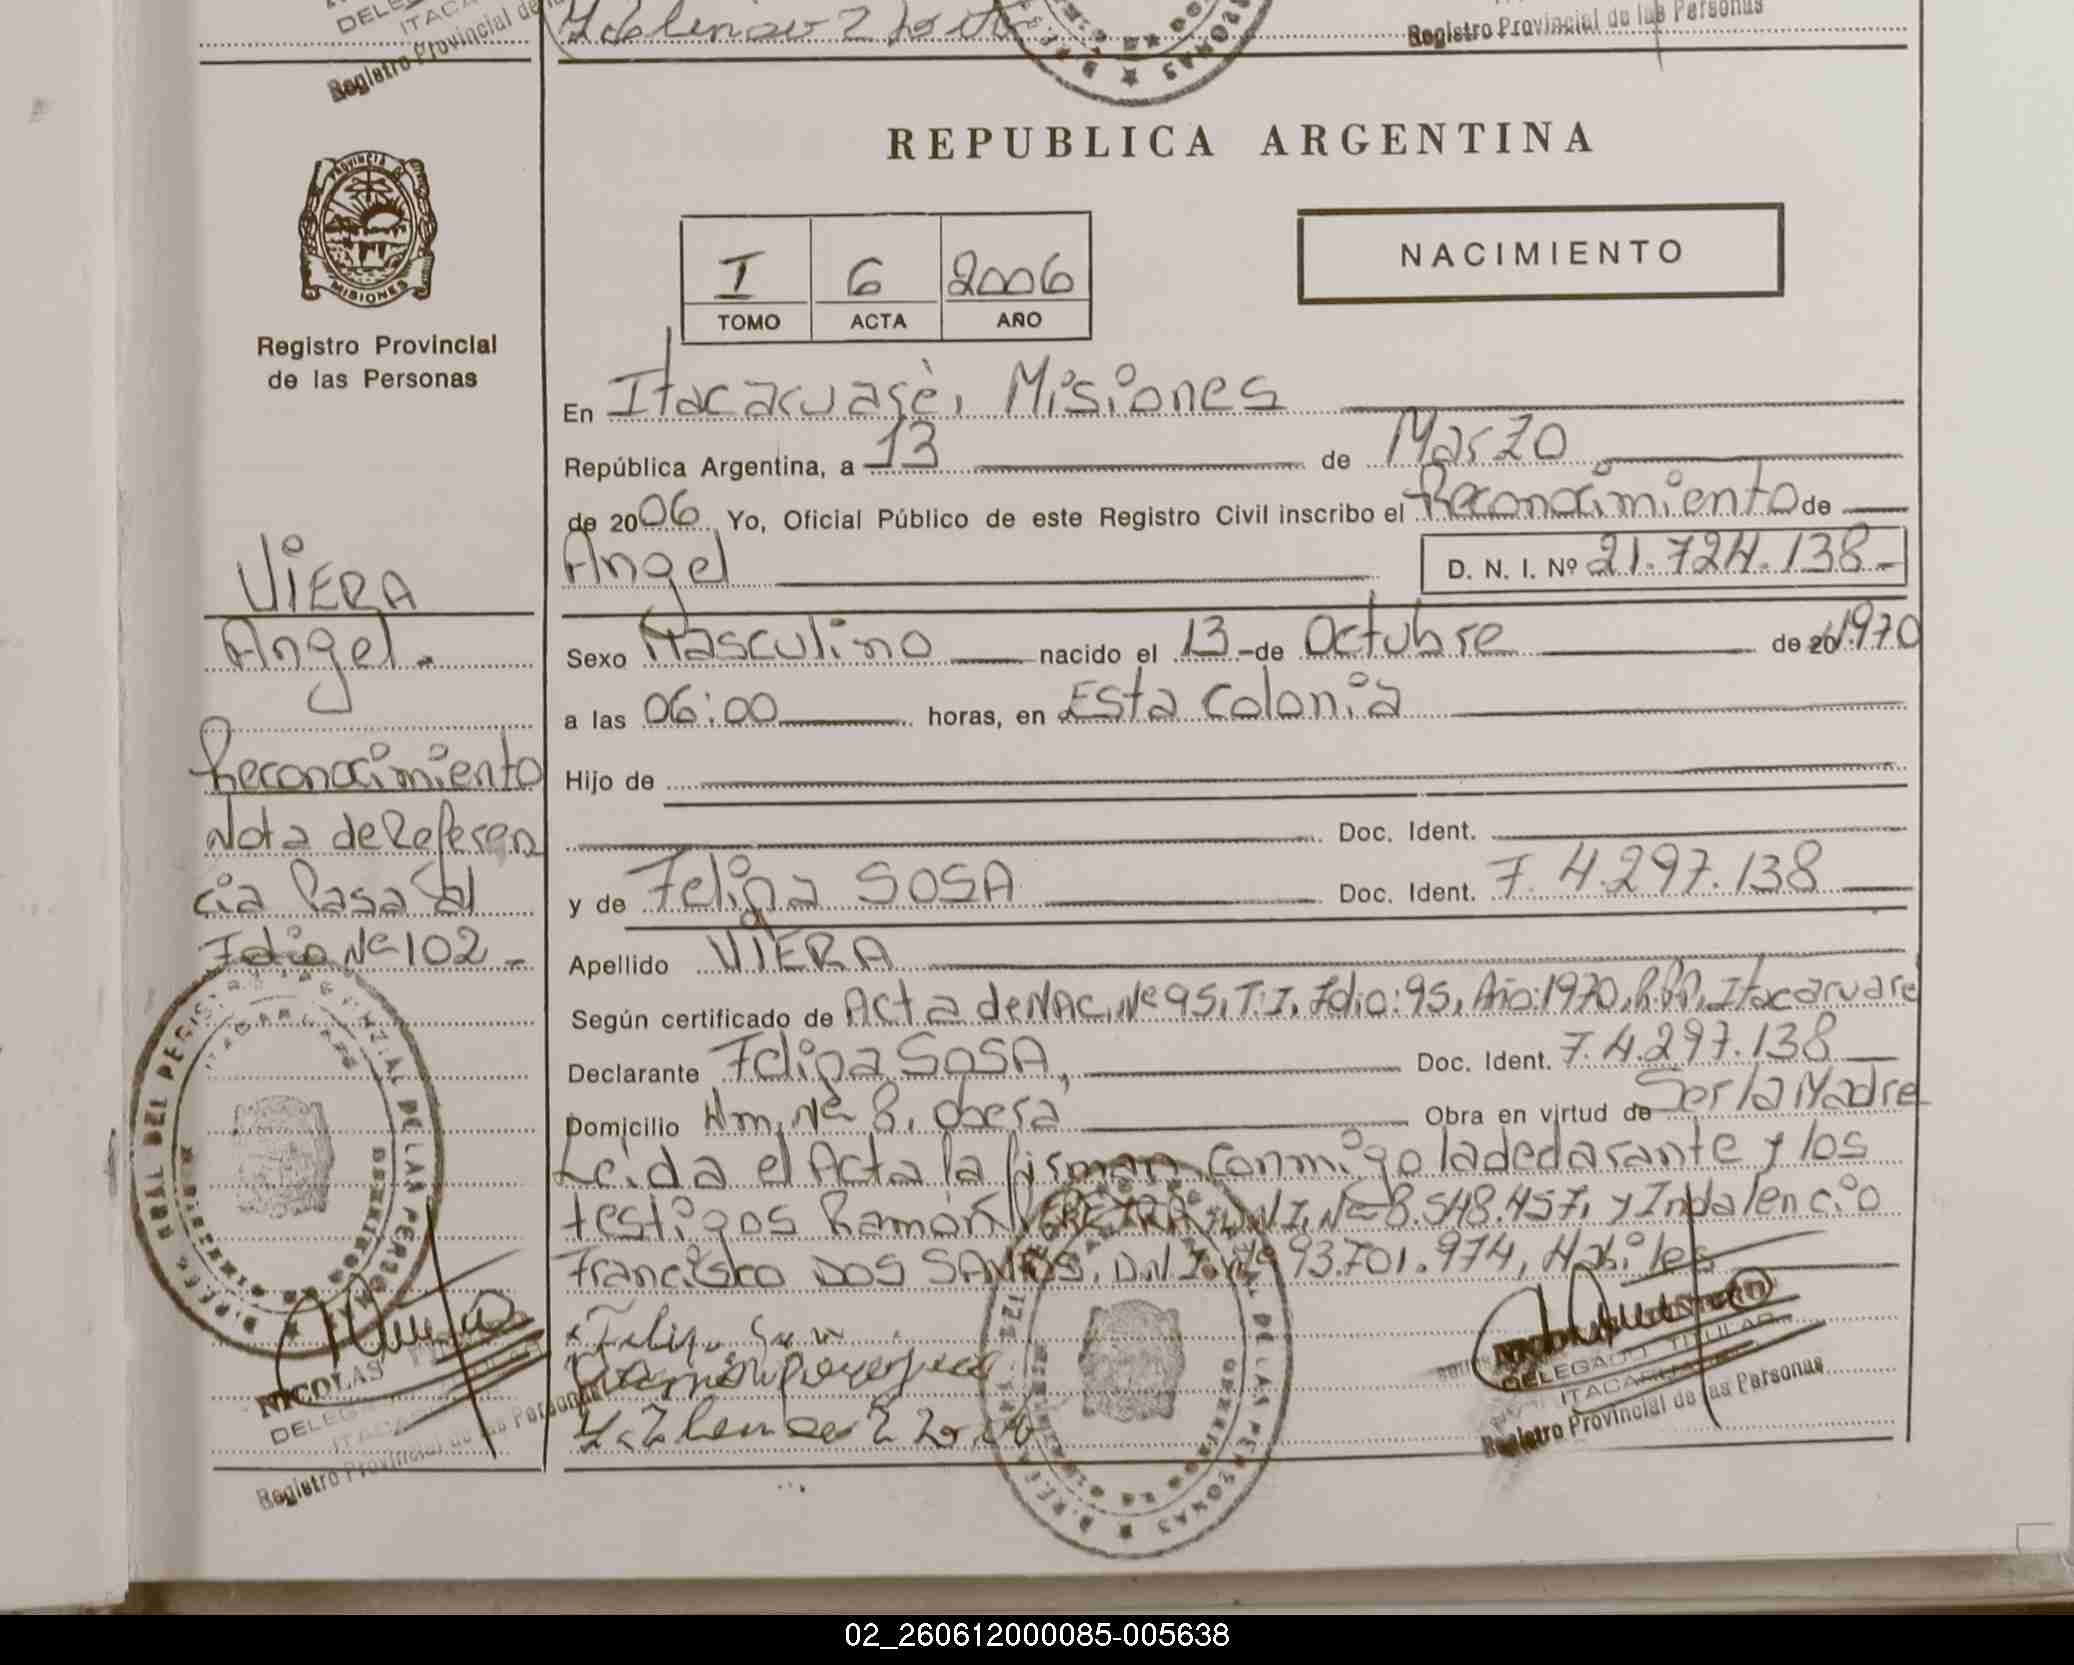 DELE
ITACA
Registro Provincial de
Registro Provincial de las Personas
REPUBLICA ARGENTINA
PROVINCIA
MISIONES
Registro Provincial
de las Personas
I 6 2006
TOMO ACTA AÑO
NACIMIENTO
En Itacaruarè, Misiones
República Argentina, a 13 de Marzo
de 2006 Yo, Oficial Público de este Registro Civil inscribo el Reconocimiento de
Angel D. N. I. Nº 21.724.138-
Sexo Masculino nacido el 13 de Octubre de 20 1970
a las 06:00 horas, en Esta Colonia
Hijo de
Doc. Ident.
y de Felipa SOSA Doc. Ident. F. 4.297.138
Apellido VIERA
Según certificado de Acta de NAC. Nº 95, T: I, Folio: 95, Año: 1970, R.P.P. Itacaruare
Declarante Felipa SOSA, Doc. Ident. F. 4.297.138
Domicilio Km. Nº 8, Oberá Obra en virtud de Ser la Madre
Leida el Acta la firman conmigo la declarante y los
testigos Ramón PEREYRA, D.N.I. Nº 8.548.457, y Indalencio
Francisco DOS SANTOS, D.N.I. Nº 93.701.974, Habiles
VIERA
Angel.
Reconocimiento
Nota de Referen
cia Pasa al
Folio Nº 102
NICOLAS
DELEG
ITACA
Registro Provincial de las Personas
DELEGADO TITULAR
ITACARUARE
Registro Provincial de las Personas
02_260612000085-005638